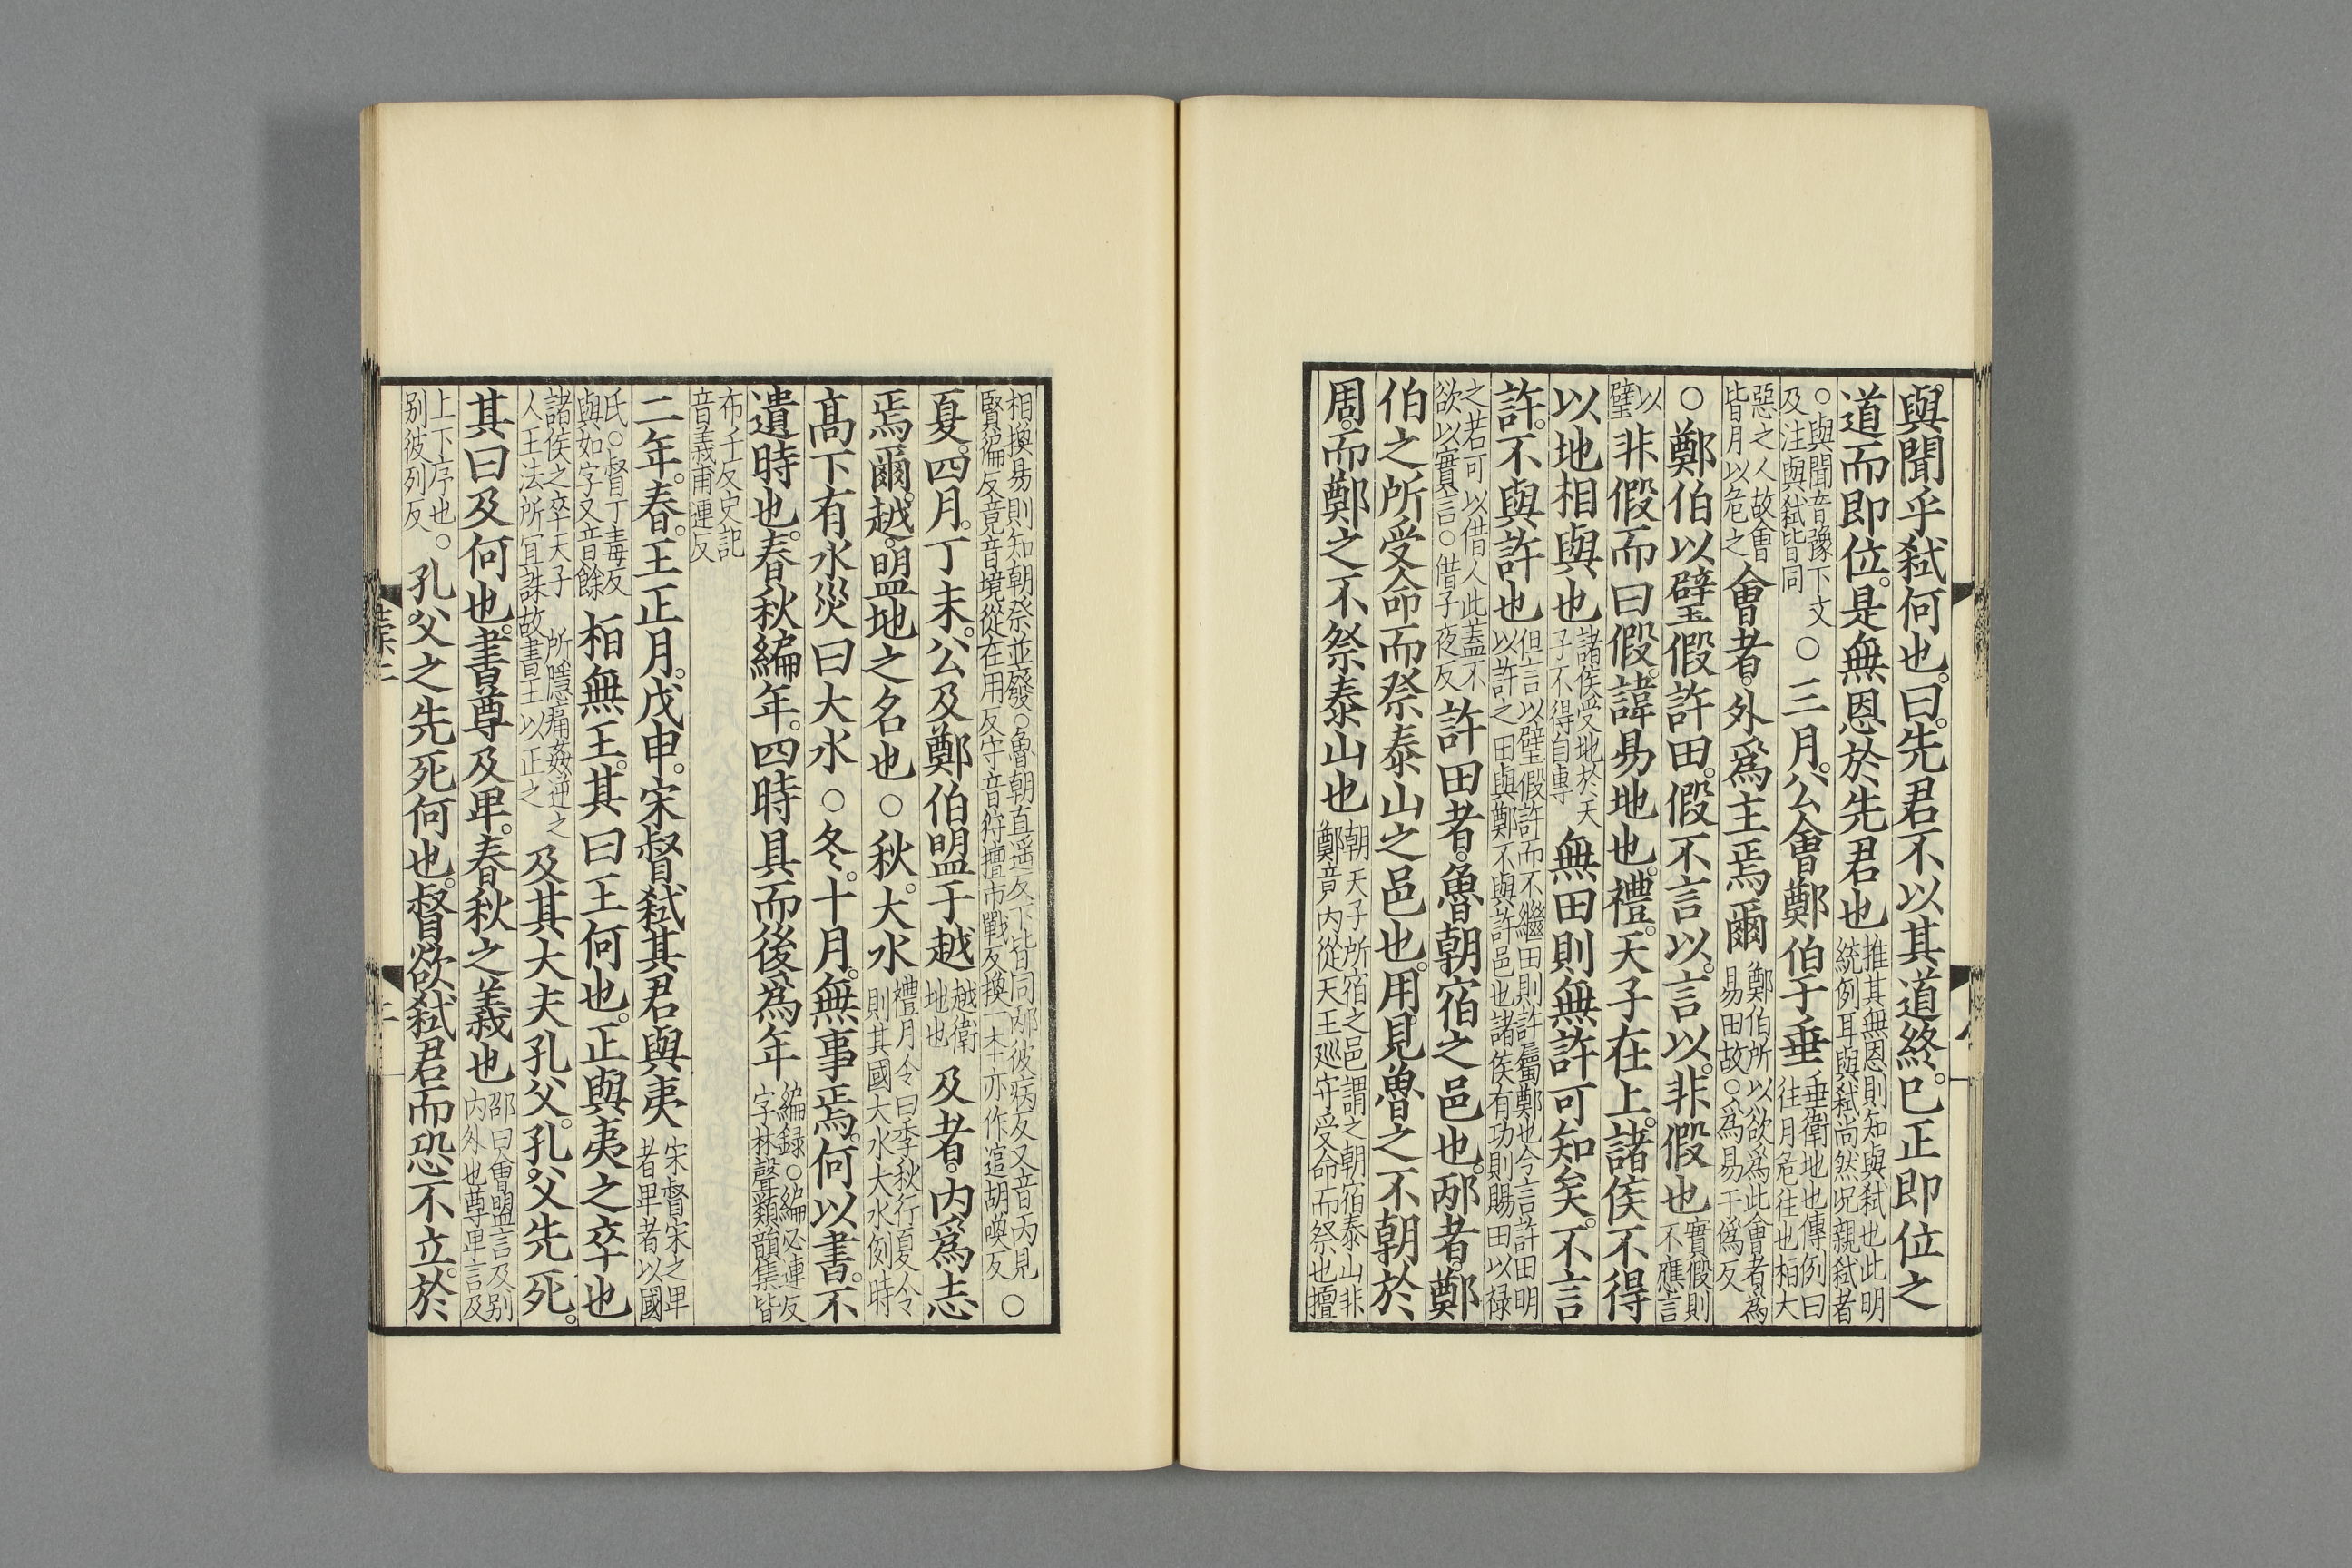 與聞乎弒何也。曰。先君不以其道終。已正即位之
道而即位。是無恩於先君也推其無恩則知與弒也此明統例耳與弒尚然況親弒者
○與聞音豫下文及注與弒皆同○三月。公會鄭伯于垂垂衛地也傳例曰往月危往也桓大
惡之人故會皆月以危之會者。外爲主焉爾鄭伯所以欲爲此會者爲易田故○爲易于僞反
○鄭伯以璧假許田。假不言以。言以。非假也實假則不應言
以璧非假而曰假。諱易地也。禮。天子在上。諸侯不得
以地相與也諸侯受地於天子不得自專無田則無許可知矣。不言
許。不與許也但言以璧假許而不繼田則許屬鄭也今言許田明以許之田與鄭不與許邑也諸侯有功則賜田以禄
之若可以借人此蓋不欲以實言○借子夜反許田者。魯朝宿之邑也。邴者。鄭
伯之所受命而祭泰山之邑也。用見魯之不朝於
周。而鄭之不祭泰山也朝天子所宿之邑謂之朝宿泰山非鄭竟內從天王廵守受命而祭也擅
相換易則知朝祭並發○魯朝直遥反下皆同邴彼病反又音丙見賢徧反竟音境從在用反守音狩擅市戰反換一本亦作逭胡喚反○
夏。四月。丁未。公及鄭伯盟于越越衛地也及者。內爲志
焉爾。越。盟地之名也○秋。大水禮月令曰季秋行夏令則其國大水大水例時
高下有水災曰大水○冬。十月。無事焉。何以書。不
遺時也。春秋編年。四時具而後爲年編録○編必連反字林聲類韻集皆
布千反史記音義甫連反
二年。春。王正月。戊申。宋督弒其君與夷宋督宋之卑者卑者以國
氏○督丁毒反與如字又音餘桓無王。其曰王何也。正與夷之卒也
諸侯之卒天子所隱痛姦逆之人王法所宜誅故書王以正之及其大夫孔父。孔父先死。
其曰及何也。書尊及卑。春秋之義也邵曰會盟言及别內外也尊卑言及
上下序也。别彼列反孔父之先死何也。督欲弒君而恐不立。於